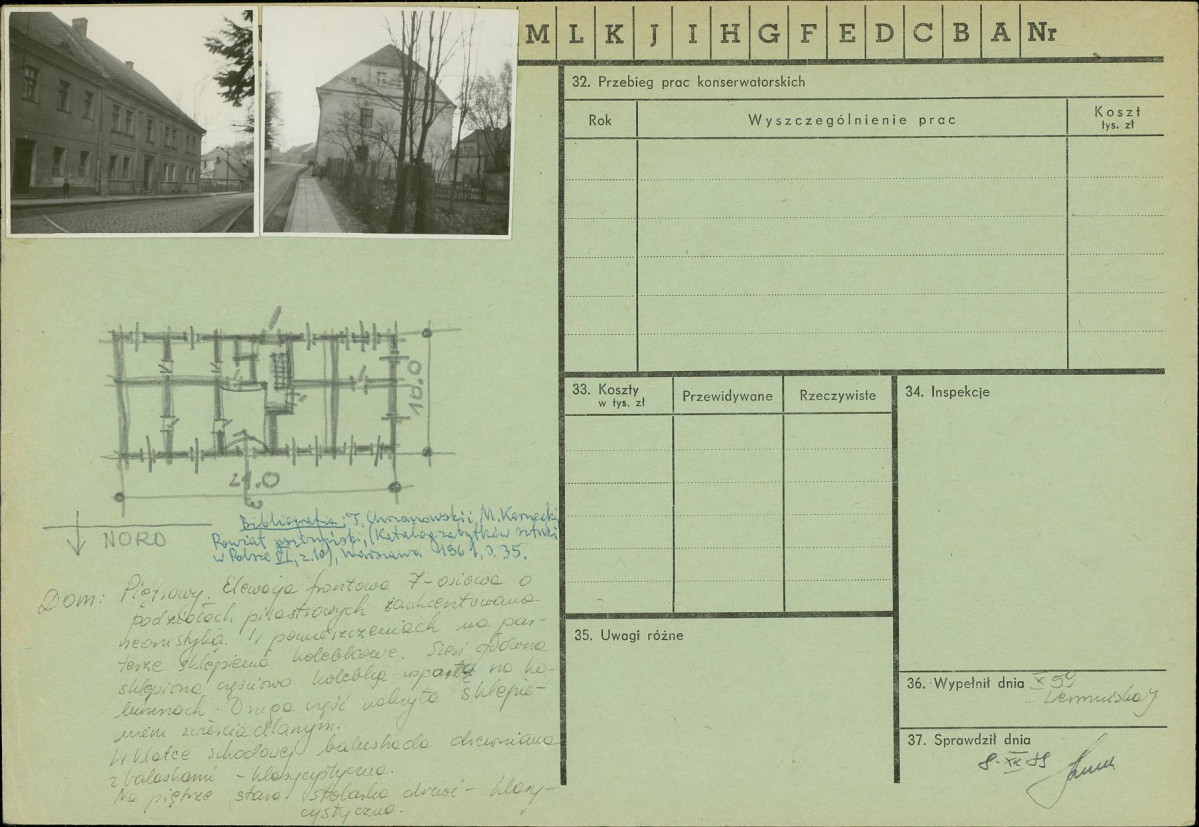 M L K J I H G F E D C B A Nr
32. Przebieg prac konserwatorskich
Rok
Wyszczególnienie prac
Koszt
tys. zł
10.0
21.0
NORD
Bibliografia: T. Chrzanowski i M. Kornecki,
Powiat prudnicki, (Katalog zabytków sztuki
w Polsce VII, z. 10), Warszawa 1961, s. 35.
Dom: Piętrowy. Elewacja frontowa 7-osiowa o
podziałach pilastrowych zaakcentowana
W pomieszczeniach na par-
terze sklepienia kolebkowe. Sień główna
sklepiona częściowo kolebką wspartą na ko-
lumnach. Druga część nakryta sklepie-
niem zwierciadlanym.
W klatce schodowej balustrada drewniana
z balaskami - klasycystyczna.
Na piętrze stara stolarka drzwi - klasy-
cystyczna.
33. Koszty
w tys. zł
Przewidywane
Rzeczywiste
34. Inspekcje
35. Uwagi różne
36. Wypełnił dnia X 59
37. Sprawdził dnia